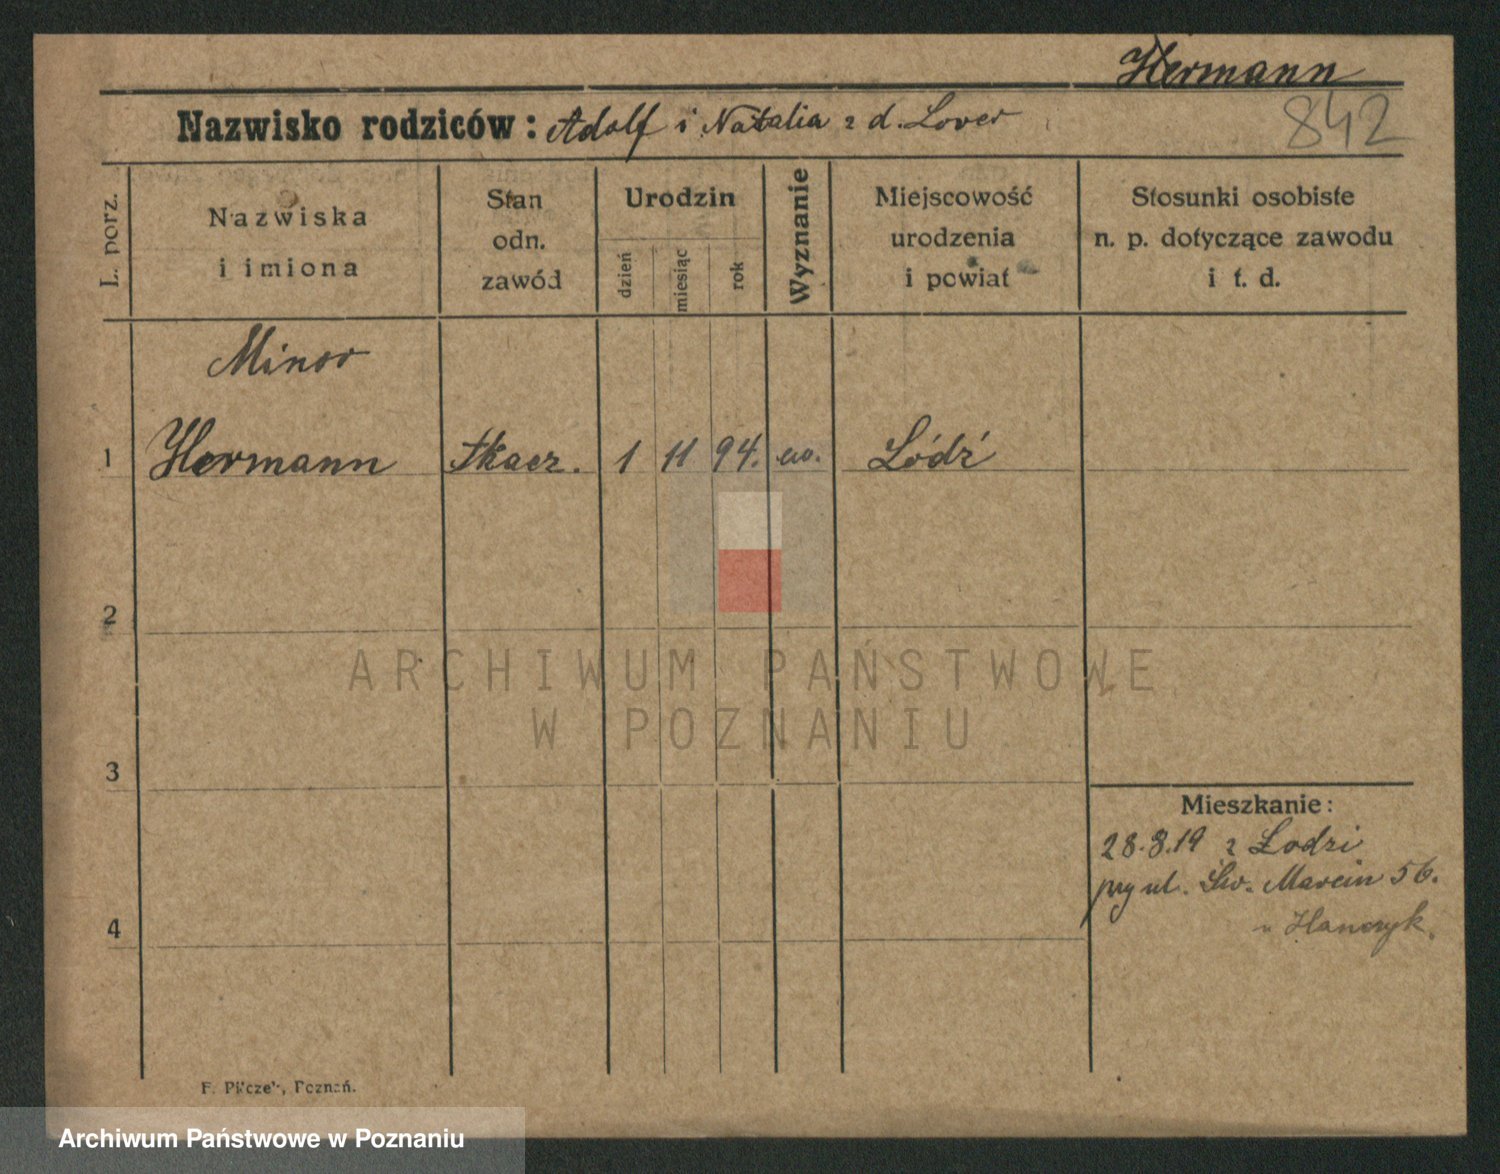 Hermann
842
Nazwisko rodziców: Adolf i Natalia z d. Lover
L. porz.
Nazwiska
i imiona
Stan
odn.
zawód
Urodzin
dzień
miesiąc
rok
Wyznanie
Miejscowość
urodzenia
i powiat
Stosunki osobiste
n. p. dotyczące zawodu
i t. d.
Minor
1 Hermann tkacz. 1 11 94. ew. Łódź
2
ARCHIWUM PAŃSTWOWE
W POZNANIU
3
Mieszkanie:
28.8.19 z Łodzi
przy ul. Św. Marcin 56.
u Hanczyk.
4
F. Pilczek, Poznań.
Archiwum Państwowe w Poznaniu